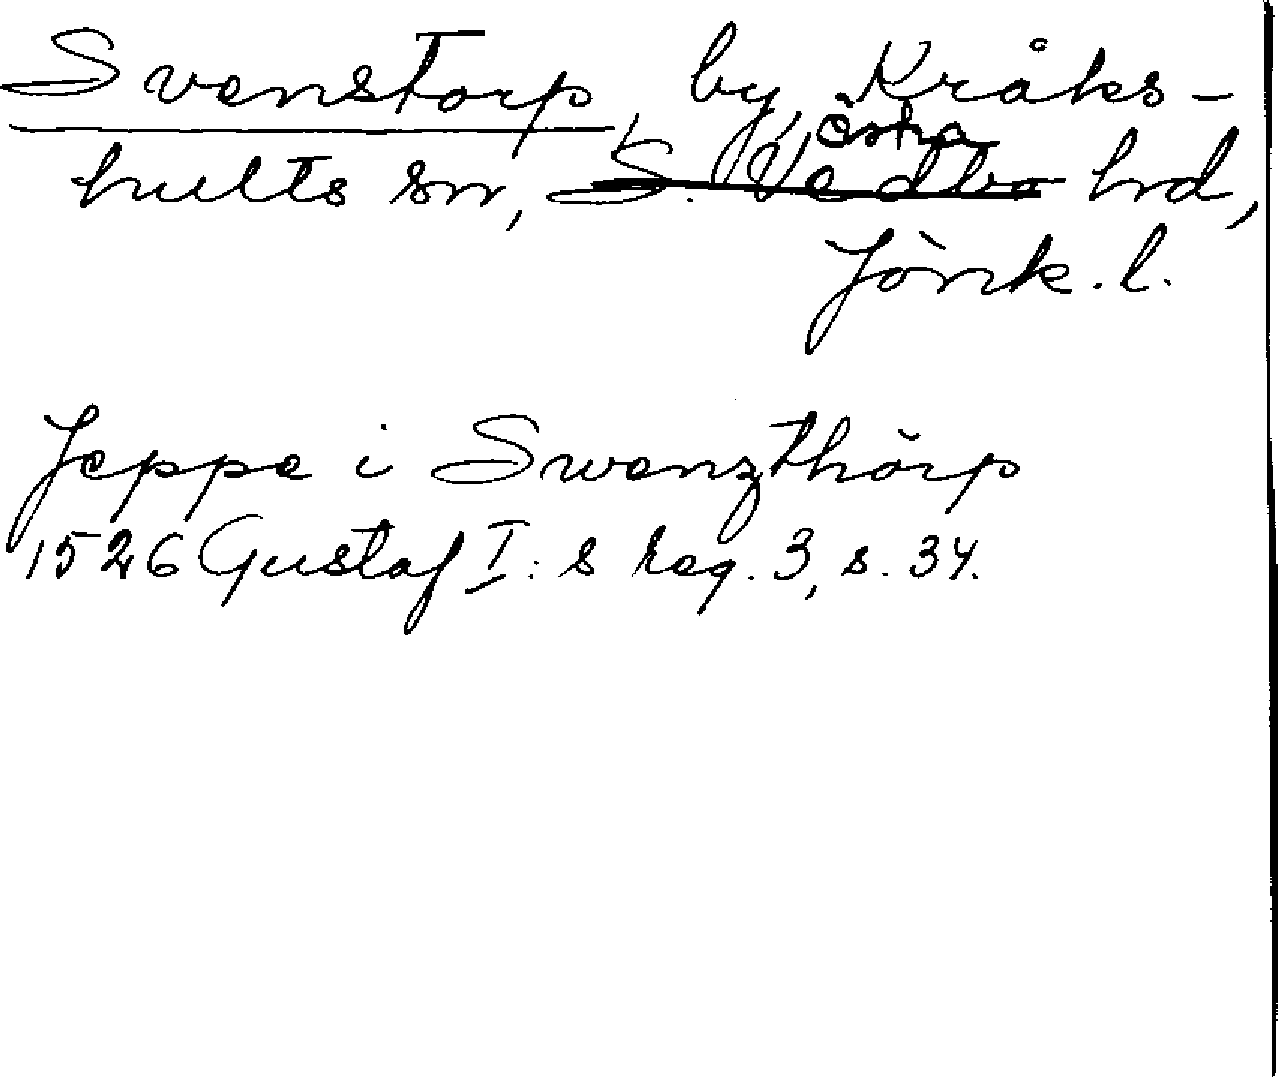 Svenstorp, by, Kråks-
hults sn, Östra
S. Vedbo hrd,
Jönk. l.
Jeppe i Swenzthorp
1526 Gustaf I:s Reg. 3, s. 34.